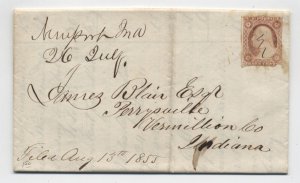 Newport Ind
26 July
James Blair Esqr
Perrysville
Vermillion Co
Indiana
Filed Aug 13th 1855